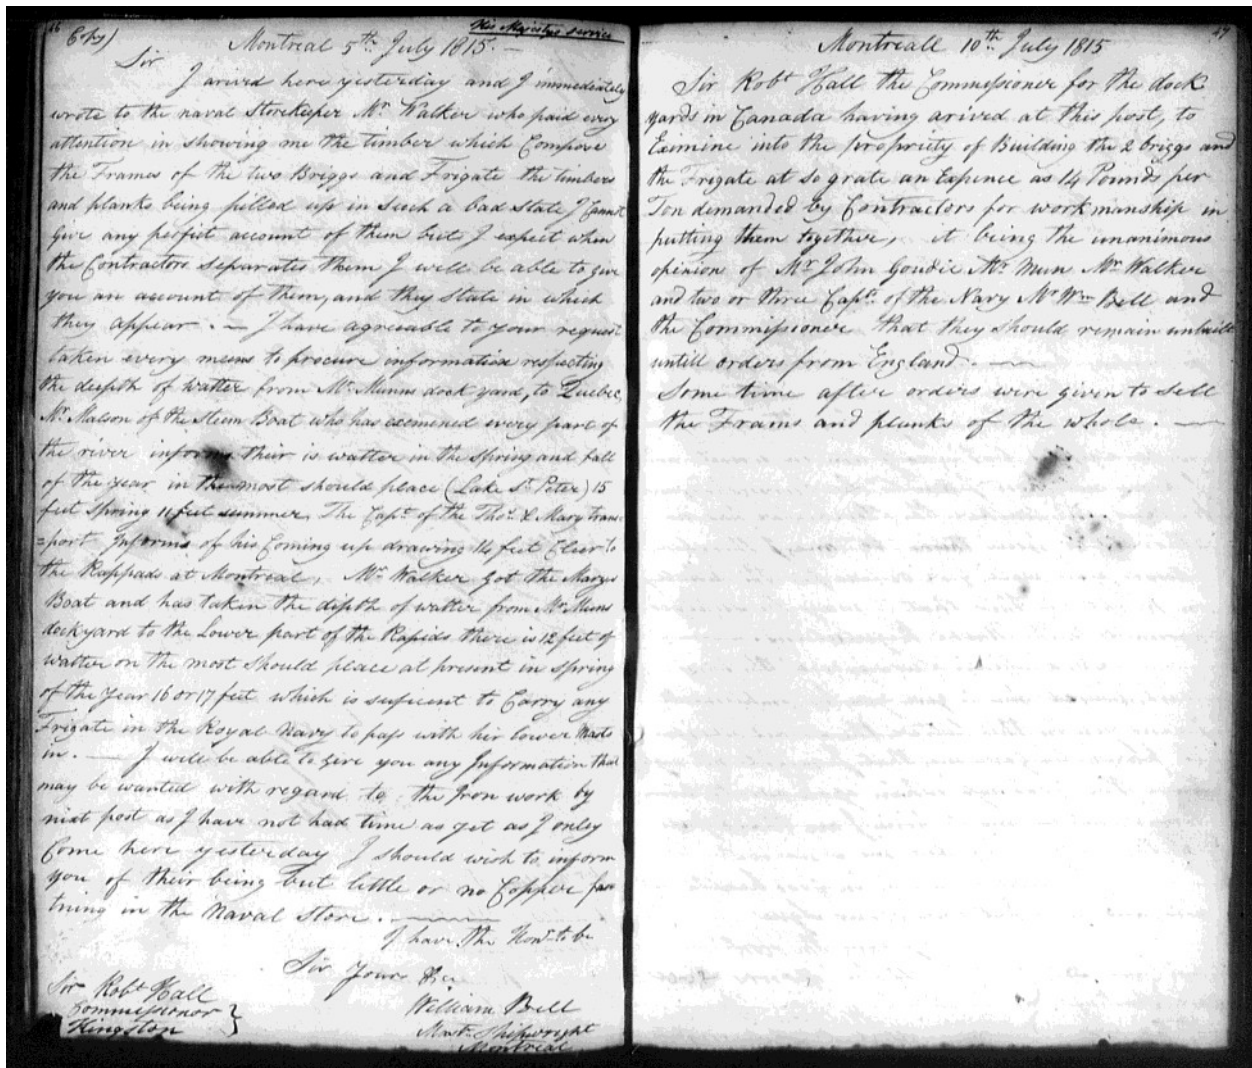 46
Copy)
His Majestys Service
Montreal 5th July 1815. —
Sir
I arived here yesterday and I immediately
wrote to the naval Storekeeper Mr Walker who paid every
attention in showing me the timber which Compose
the Frames of the two Briggs and Frigate the timbers
and planks being pilled up in Such a bad State I Cannot
Give any perfict account of them but I expect when
the Contractors Separates them I will be able to give
you an account of them, and they State in which
they appear. — I have agreeable to your request
taken every means to procure information respecting
the deepth of watter from Mr Munns dock yard, to Quebec,
Mr Malson of the Steem Boat who has exemened every part of
the river informs their is watter in the Spring and fall
of the year in the most should place (Lake St Peter) 15
feet Spring 11 feet summer, The Capt of the Thos & Mary trans
=port Informs of his Coming up drawing 14 feet Cleer to
the Rappads at Montreal, Mr Walker got the Marys
Boat and has taken the dipth of watter from Mr Muns
dockyard to the Lower part of the Rapids there is 12 feet of
watter on the most Should place at present in Spring
of the year 16 or 17 feet which is suficent to Carry any
Frigate in the Royal Navy to pass with her lower Masts
in. — I will be able to give you any Information that
may be wanted with regard to the Iron work by
nixt post as I have not had time as yet as I onley
Come here yesterday I should wish to inform
you of their being but little or no Copper fas
tning in the Naval Store. —
I have the Honr to be
Sir Yours &c
Sir Robt Hall
Commissionor }
Kingston
William Bell
Mastr Shipwright
Montreal
47
Montreall 10th July 1815
Sir Robt Hall the Commissioner for the dock
yards in Canada having arived at this post, to
Exmine into the propriety of Building the 2 briggs and
the Frigate at so grate an Expence as 14 Pounds per
Ton demanded by Contractors for workmanship in
putting them together, it being the unanimous
opinion of Mr John Goudie Mr Mun Mr Walker
and two or three Capts of the Navy Mr Wm Bell and
the Commissioner that they should remain unbuilt
untill orders from England. —
Some time after orders were given to sell
the Frams and planks of the whole. —